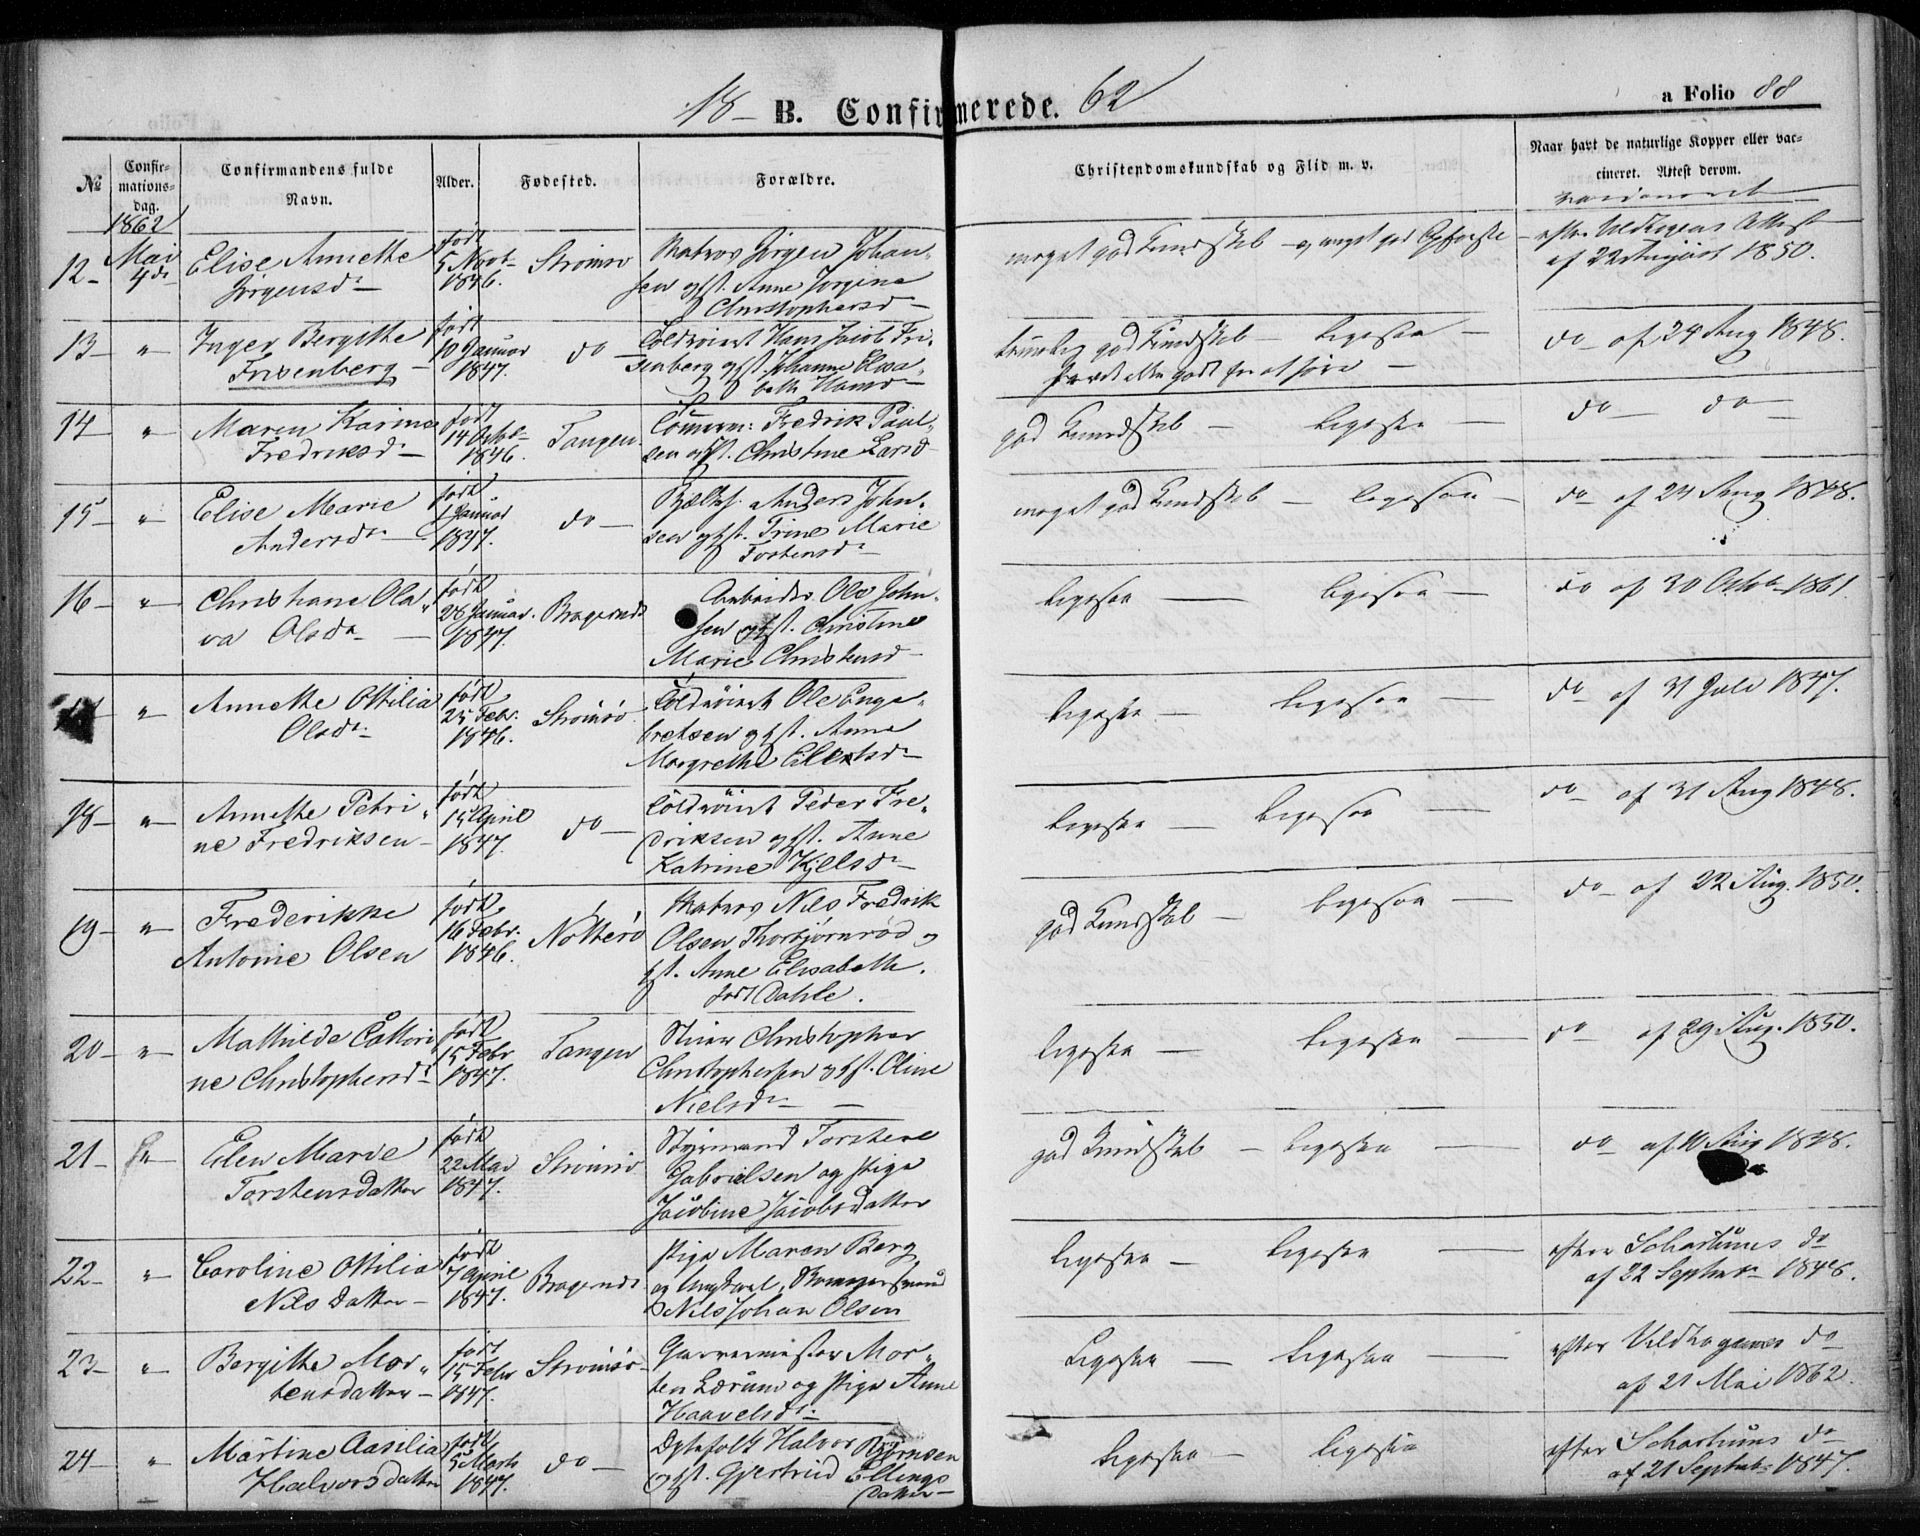 18 B. Confirmerede. 62
a Folio 88
№
Confir-
mations-
dag.
Confirmandens fulde
Navn.
Alder.
Fødested.
Forældre.
Christendomskundskab og Flid m. v.
Naar havt de naturlige Kopper eller vac-
cineret. Attest derom.
1862
12 Mai 4de Elise Annette
Jörgensdr
født
5 Novbr
1846.
Strømsø
Matros Jörgen Johan-
sen og hst. Anne Jörgine
Christophersdr
meget god Kundskab og meget god Opførsel
vaccineret
efter Veldhagens Attest
af 22 August 1850.
13 " Inger Bergitte
Frisenberg
født
10 Januar
1847.
do
Toldvisit Hans Jacob Fri-
senberg og hst. Johanne Elisa-
beth Hansdr
god Kundskab ligesaa
do af 24 Aug 1848.
14 " Maren Karine
Fredriksd
født
14 Octbr
1846.
Tangen
Tömerm: Fredrik Paul-
sen og hst. Christine Larsd
god Kundskab ligesaa
do do
15 " Elise Marie
Andersdr
født
1 Januar
1847.
do
Anders John-
sen og hst. Trine Marie
Tostensdr
meget god Kundskab ligesaa
do af 24 Aug 1848.
16 " Christiane Ola-
va Olsdr
født
28 Januar
1847.
Bragernes
Arbeider Ole John-
sen og hst. Christine
Marie Christensd
ligesaa ligesaa
do af 30 Octob 1861.
" Annette Ottilia
Olsdr
født
25 Febr.
1846.
Strømsø
Toldvisit Ole Enge-
bretsen og hst. Anne
Margrethe Eilertsdr
ligesaa ligesaa
do af 31 Juli 1847.
18 " Annette Petri-
ne Fredriksen
født
15 April
1847.
do
Toldvisit Peder Fre-
driksen og hst. Anne
Katrine Kjelsdr
ligesaa ligesaa
do af 31 Aug 1848.
19 " Frederikke
Antonie Olsen
født
16 Febr.
1846.
Nøtterø
Matros Nils Fredrik
Olsen Thorbjørnrød og
hst. Anne Elisabeth
født Dahle.
god Kundskab ligesaa
do af 22 Aug. 1850.
20 " Mathilde Cattori-
ne Christophersdr
født
15 Febr
1847.
Tangen
Christopher
Christophersen og hst. Oline
Nielsdr
ligesaa ligesaa
do af 29 Aug. 1850.
21 " Elen Marie
Torstensdatter
født
22 Mai
1847.
Strømsø
Styrmand Torsten
Gabrielsen og Pige
Jacobine Jacobsdatter
god Kundskab ligesaa
do af 11 Aug 1848.
22 " Caroline Ottilia
Nilsdatter
født
7 April
1847.
Bragernes
Pige Maren Berg
og Ungkarl
Nils Johan Olsen
ligesaa ligesaa
efter Schartums do
af 22 Septembr 1848.
23 " Bergitte Mor-
tensdatter
født
15 Febr
1847.
Strømsø
Garvermester Mor-
ten Lærum og Pige Anne
Haavelsdr
Ligesaa ligesaa
efter Veldhagens do
af 21 Mai 1862.
24 " Martine Aasilia
Halvorsdatter
født
5 Marts
1847.
do
Ægtefolk Halvor Bjørnsen
og hst. Gjertrud Ellings
datter
ligesaa ligesaa
efter Schartums do
af 21 Septbr 1847.